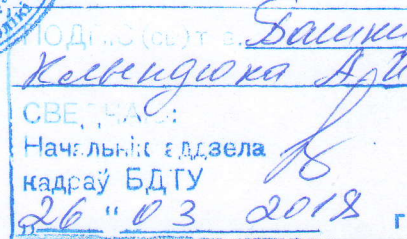 ПОДПІС(сы)т. в. Башки
Клындюка А. И
СВЕДЧАЮ:
Начальнік аддзела
кадраў БДТУ
"26" 03 2018 г